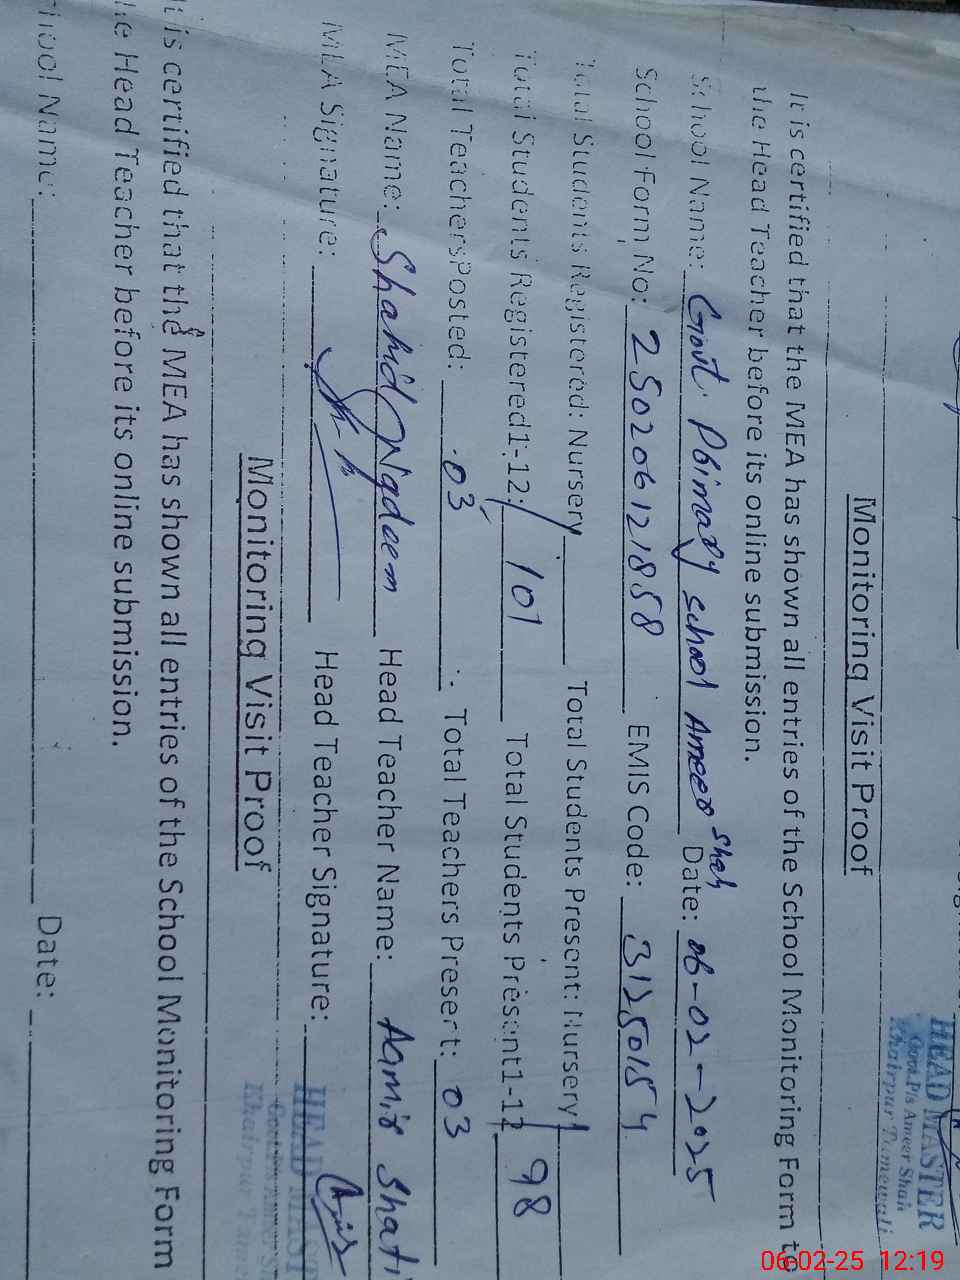 HEAD MASTER
Govt. P/s Ameer Shah
Khairpur Tamewali
Monitoring Visit Proof
It is certified that the MEA has shown all entries of the School Monitoring Form to
the Head Teacher before its online submission.
School Name: Govt. Primary school Ameer Shah Date: 06-02-2025
School Form No: 250206121858 EMIS Code: 31250154
Total Students Registered: Nursery Total Students Present: Nursery
Total Students Registered1-12: 101 Total Students Present1-12 98
Total Teachers Posted: 03 Total Teachers Present: 03
MEA Name: Shahid Nadeem Head Teacher Name: Aamir Shafi
MEA Signature: Head Teacher Signature:
HEAD MAST
Khairpur Tame
Monitoring Visit Proof
It is certified that the MEA has shown all entries of the School Monitoring Form
he Head Teacher before its online submission.
hool Name: Date:
06-02-25 12:19